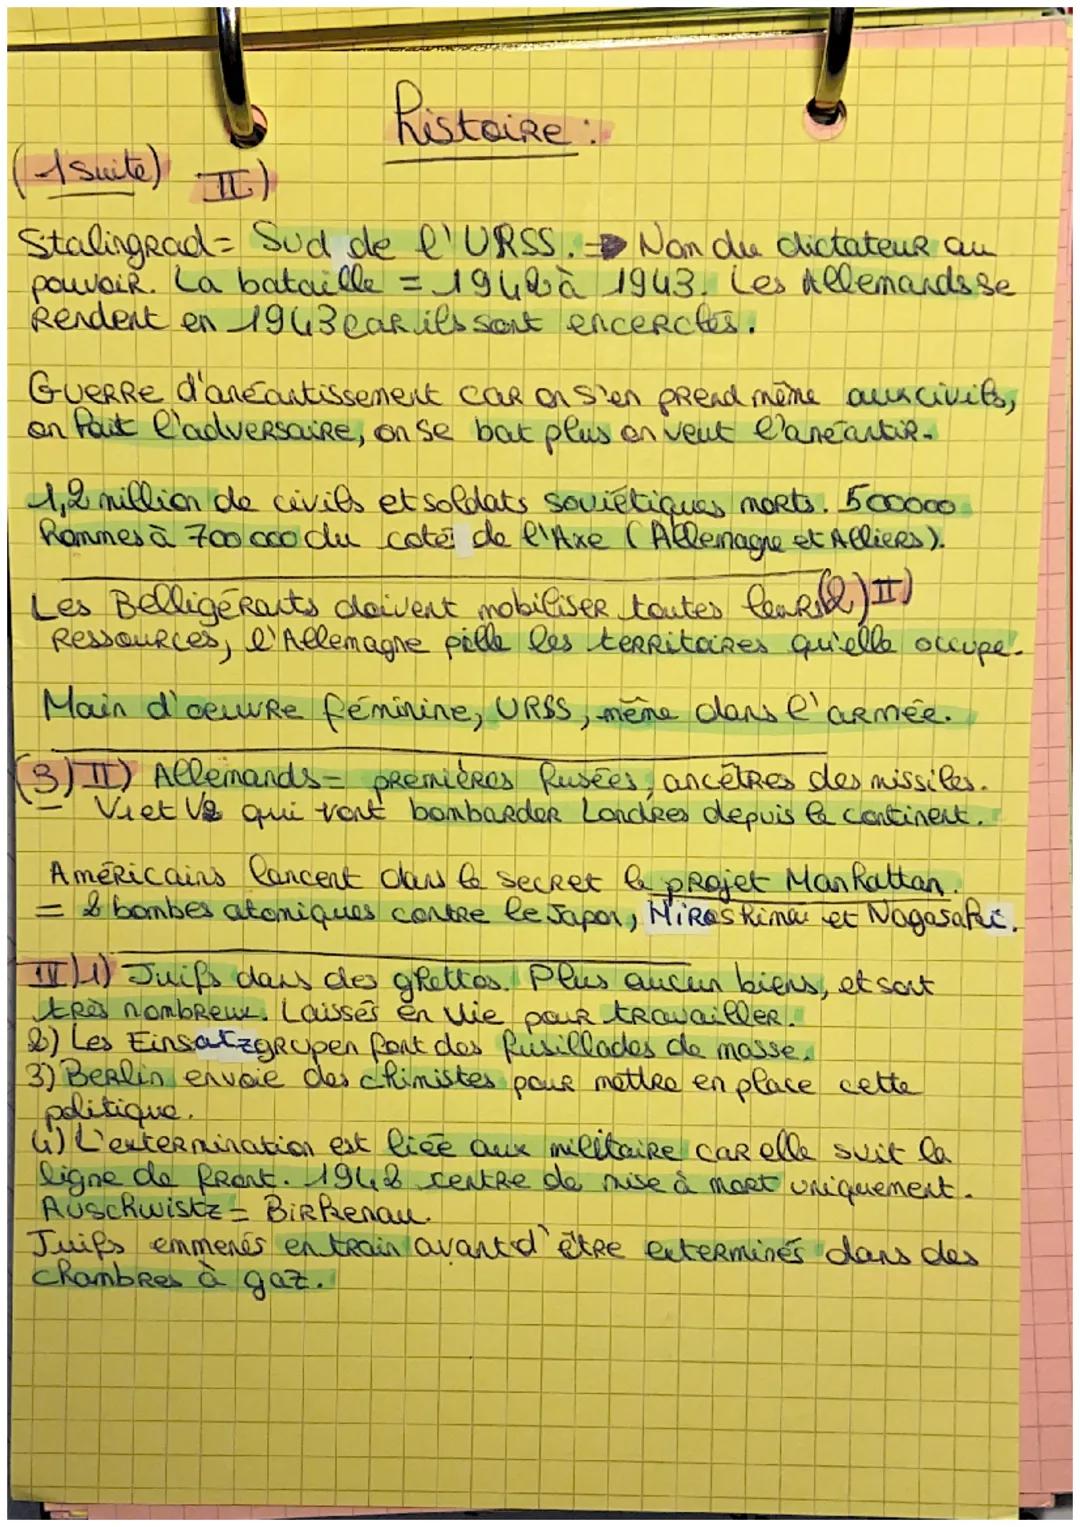 histoire :
(1 suite) II)
Stalingrad = Sud de l'URSS. => Nom du dictateur au
pouvoir. La bataille = 1942 à 1943. Les Allemands se
Rendent en 1943 car ils sont encerclés.
Guerre d'anéantissement car on s'en prend même aux civils,
on fait l'adversaire, on se bat plus on veut l'anéantir.
1,2 million de civils et soldats soviétiques morts. 500000
hommes à 700 000 du coté de l'Axe (Allemagne et Alliers).
Les Belligérants doivent mobiliser toutes leurs (2) II)
Ressources, l'Allemagne pille les territoires qu'elle occupe.
Main d'oeuvre féminine, URSS, même dans l'armée.
(3) II) Allemands = premières fusées, ancêtres des missiles.
V1 et V2 qui vont bombarder Londres depuis le continent.
Américains lancent dans le secret le projet Manhattan.
= 2 bombes atomiques contre le Japon, Hiroshima et Nagasaki.
III) 1) Juifs dans des ghettos. Plus aucun biens, et sont
très nombreux. Laissés en vie pour travailler.
2) Les Einsatzgrupen font des fusillades de masse.
3) Berlin envoie des chimistes pour mettre en place cette
politique.
4) L'extermination est liée aux militaire car elle suit la
ligne de front. 1942 centre de mise à mort uniquement.
Auschwistz = Birkenau.
Juifs emmenés en train avant d'être exterminés dans des
chambres à gaz.